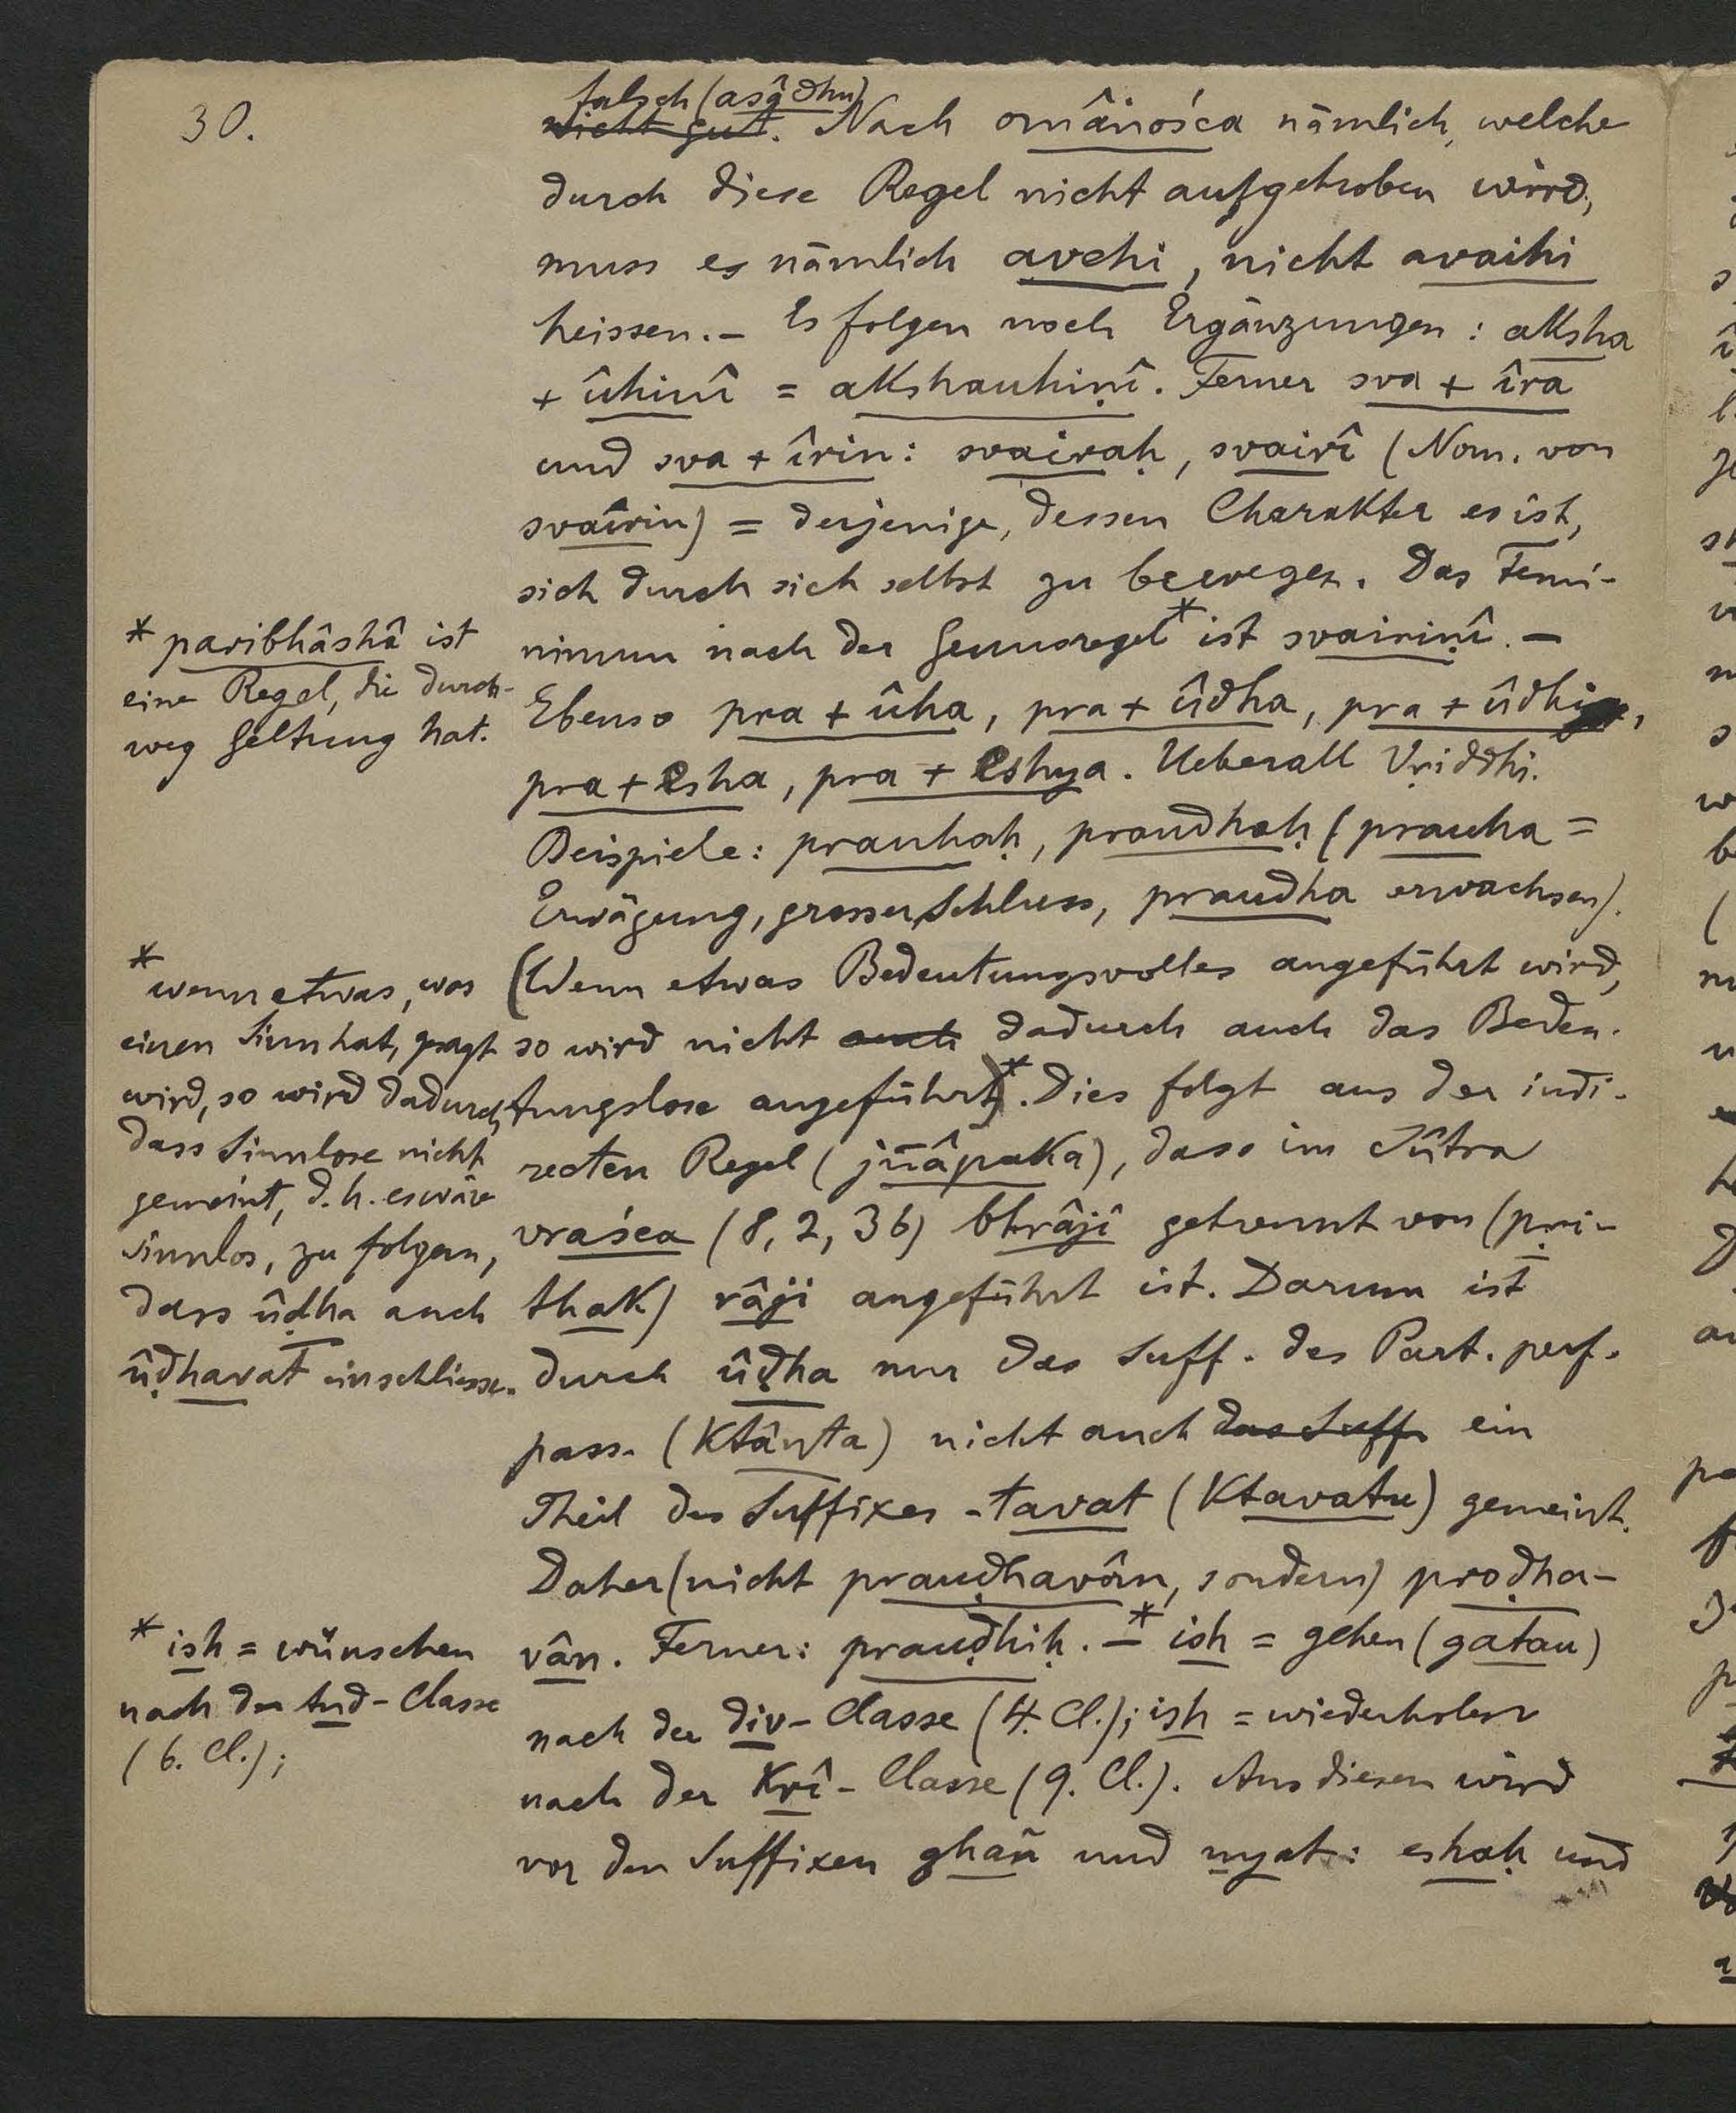 30.
falsch (asâdhu)
nicht gut. Nach omâṅośca nämlich, welche
durch diese Regel nicht aufgehoben wird,
muss es nämlich avehi, nicht avaihi
heissen. – Es folgen noch Ergänzungen: aksha
+ ûhinî = akshauhiṇî. Ferner sva + îra
und sva + îrin: svairaḥ, svairî (Nom. von
svairin) = derjenige, dessen Charakter es ist,
sich durch sich selbst zu bewegen. Das Femi-
ninum nach der Genusregel* ist svairiṇî. –
Ebenso pra + ûha, pra + ûdha, pra + ûdhi,
pra + esha, pra + eshya. Ueberall Vṛiddhi.
Beispiele: prauhaḥ, praudhaḥ (prauha =
Erwägung, grosser Schluss, praudha erwachsen).
(Wenn etwas Bedeutungsvolles angeführt wird,
so wird nicht auch dadurch auch das Bedeu-
tungslose angeführt)*. Dies folgt aus der indi-
recten Regel (jñâpaka), dass im Sûtra
vraśca (8, 2, 36) bhrâji getrennt von (pṛi-
thak) râji angeführt ist. Darum ist
durch ûḍha nur das Suff. des Part. perf.
pass. (ktânta) nicht auch das Suff. ein
Theil des Suffixes -tavat (ktavatu) gemeint.
Daher (nicht prauḍhavân, sondern) proḍha-
vân. Ferner: prauḍhiḥ. –* ish = gehen (gatau)
nach der div-Classe (4. Cl.); ish = wiederholen
nach der Krî-Classe (9. Cl.). Aus diesen wird
vor den Suffixen ghañ und ṇyat: eshaḥ und
* paribhâshâ ist
eine Regel, die durch-
weg Geltung hat.
* wenn etwas, was
einen Sinn hat, gesagt
wird, so wird dadurch
dass Sinnlose nicht
gemeint, d. h. es wäre
sinnlos, zu folgern,
dass ûḍha auch
ûḍhavat einschliesse.
* ish = wünschen
nach der tud-Classe
(6. Cl.);